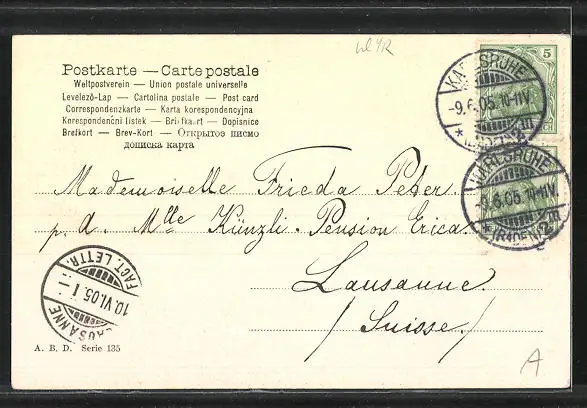 Postkarte — Carte postale
Weltpostverein — Union postale universelle
Levelezö-Lap — Cartolina postale — Post card
Correspondenzkarte — Karta korespondencyjna
Korespondenční lístek — Briefkaart — Dopisnice
Brefkort — Brev-Kort — Открытое письмо
дописка карта
Mademoiselle Frieda Peter.
p. d. Mlle Künzli. Pension Erica.
Lausanne.
/Suisse./
KARLSRUHE
-9.6.05.10-11V.
5
KARLSRUHE
-9.6.05.10-11V.
*(BADEN)2
LAUSANNE
10.VI.05.I-
FACT. LETTR.
A. B. D. Serie 135
A